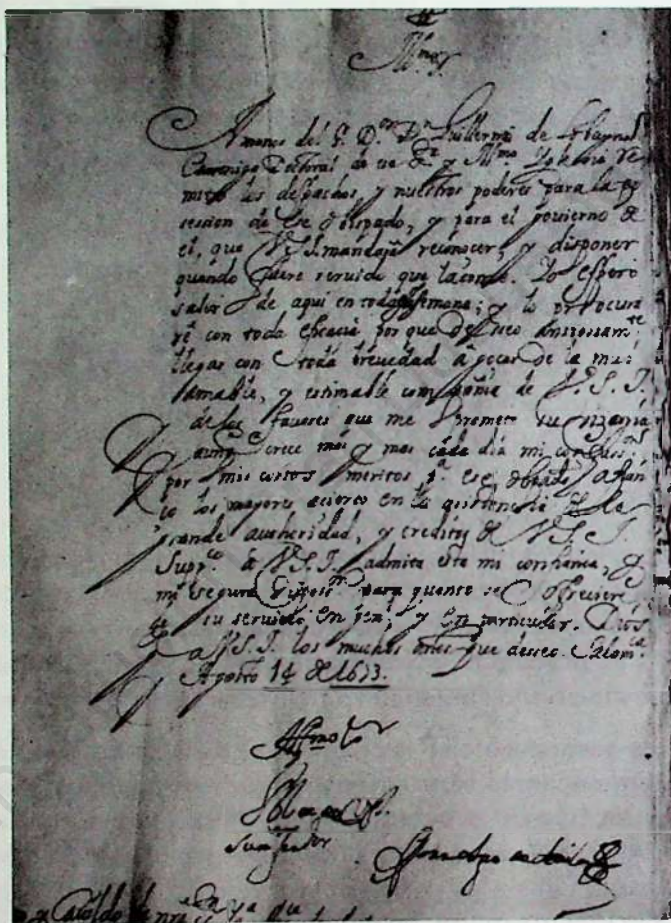 Illmo. S.
A manos del S. Dor. Dn. Guillermo de
Canonigo Doctoral de ea Sta. y Illma. Yglesia re
mito los despachos, y nuestros poderes para la po
session de ese obispado, y para el govierno de
el, que V.S.I. mandara reconocer, y disponer
quando fuere servido que la tome. Yo espero
salir de aqui en toda esta semana; y lo procura
re con toda eficacia por que desseo ansiosamte.
llegar con toda brevedad â goçar de la mas
amable, y estimable compañia de V.S.I.
de los favores que me prometo su
aunq crece mas y mas cada dia mi confuson.
por mis cortos meritos pa. ese obpado,
co los mayores aciertos en la asistencia de la
grande autheridad, y creditos de V.S.I.
Suppco. â V.S.I. admita esta mi confianza, y
mi segura disposon. para quanto se ofreciere
de su servicio en genl. y en particular. Dios
a V.S.I. los muchos años que desseo. Salama.
Agosto 14 de 1673.
Illmo. S.
su servor.
Cavildo de nra